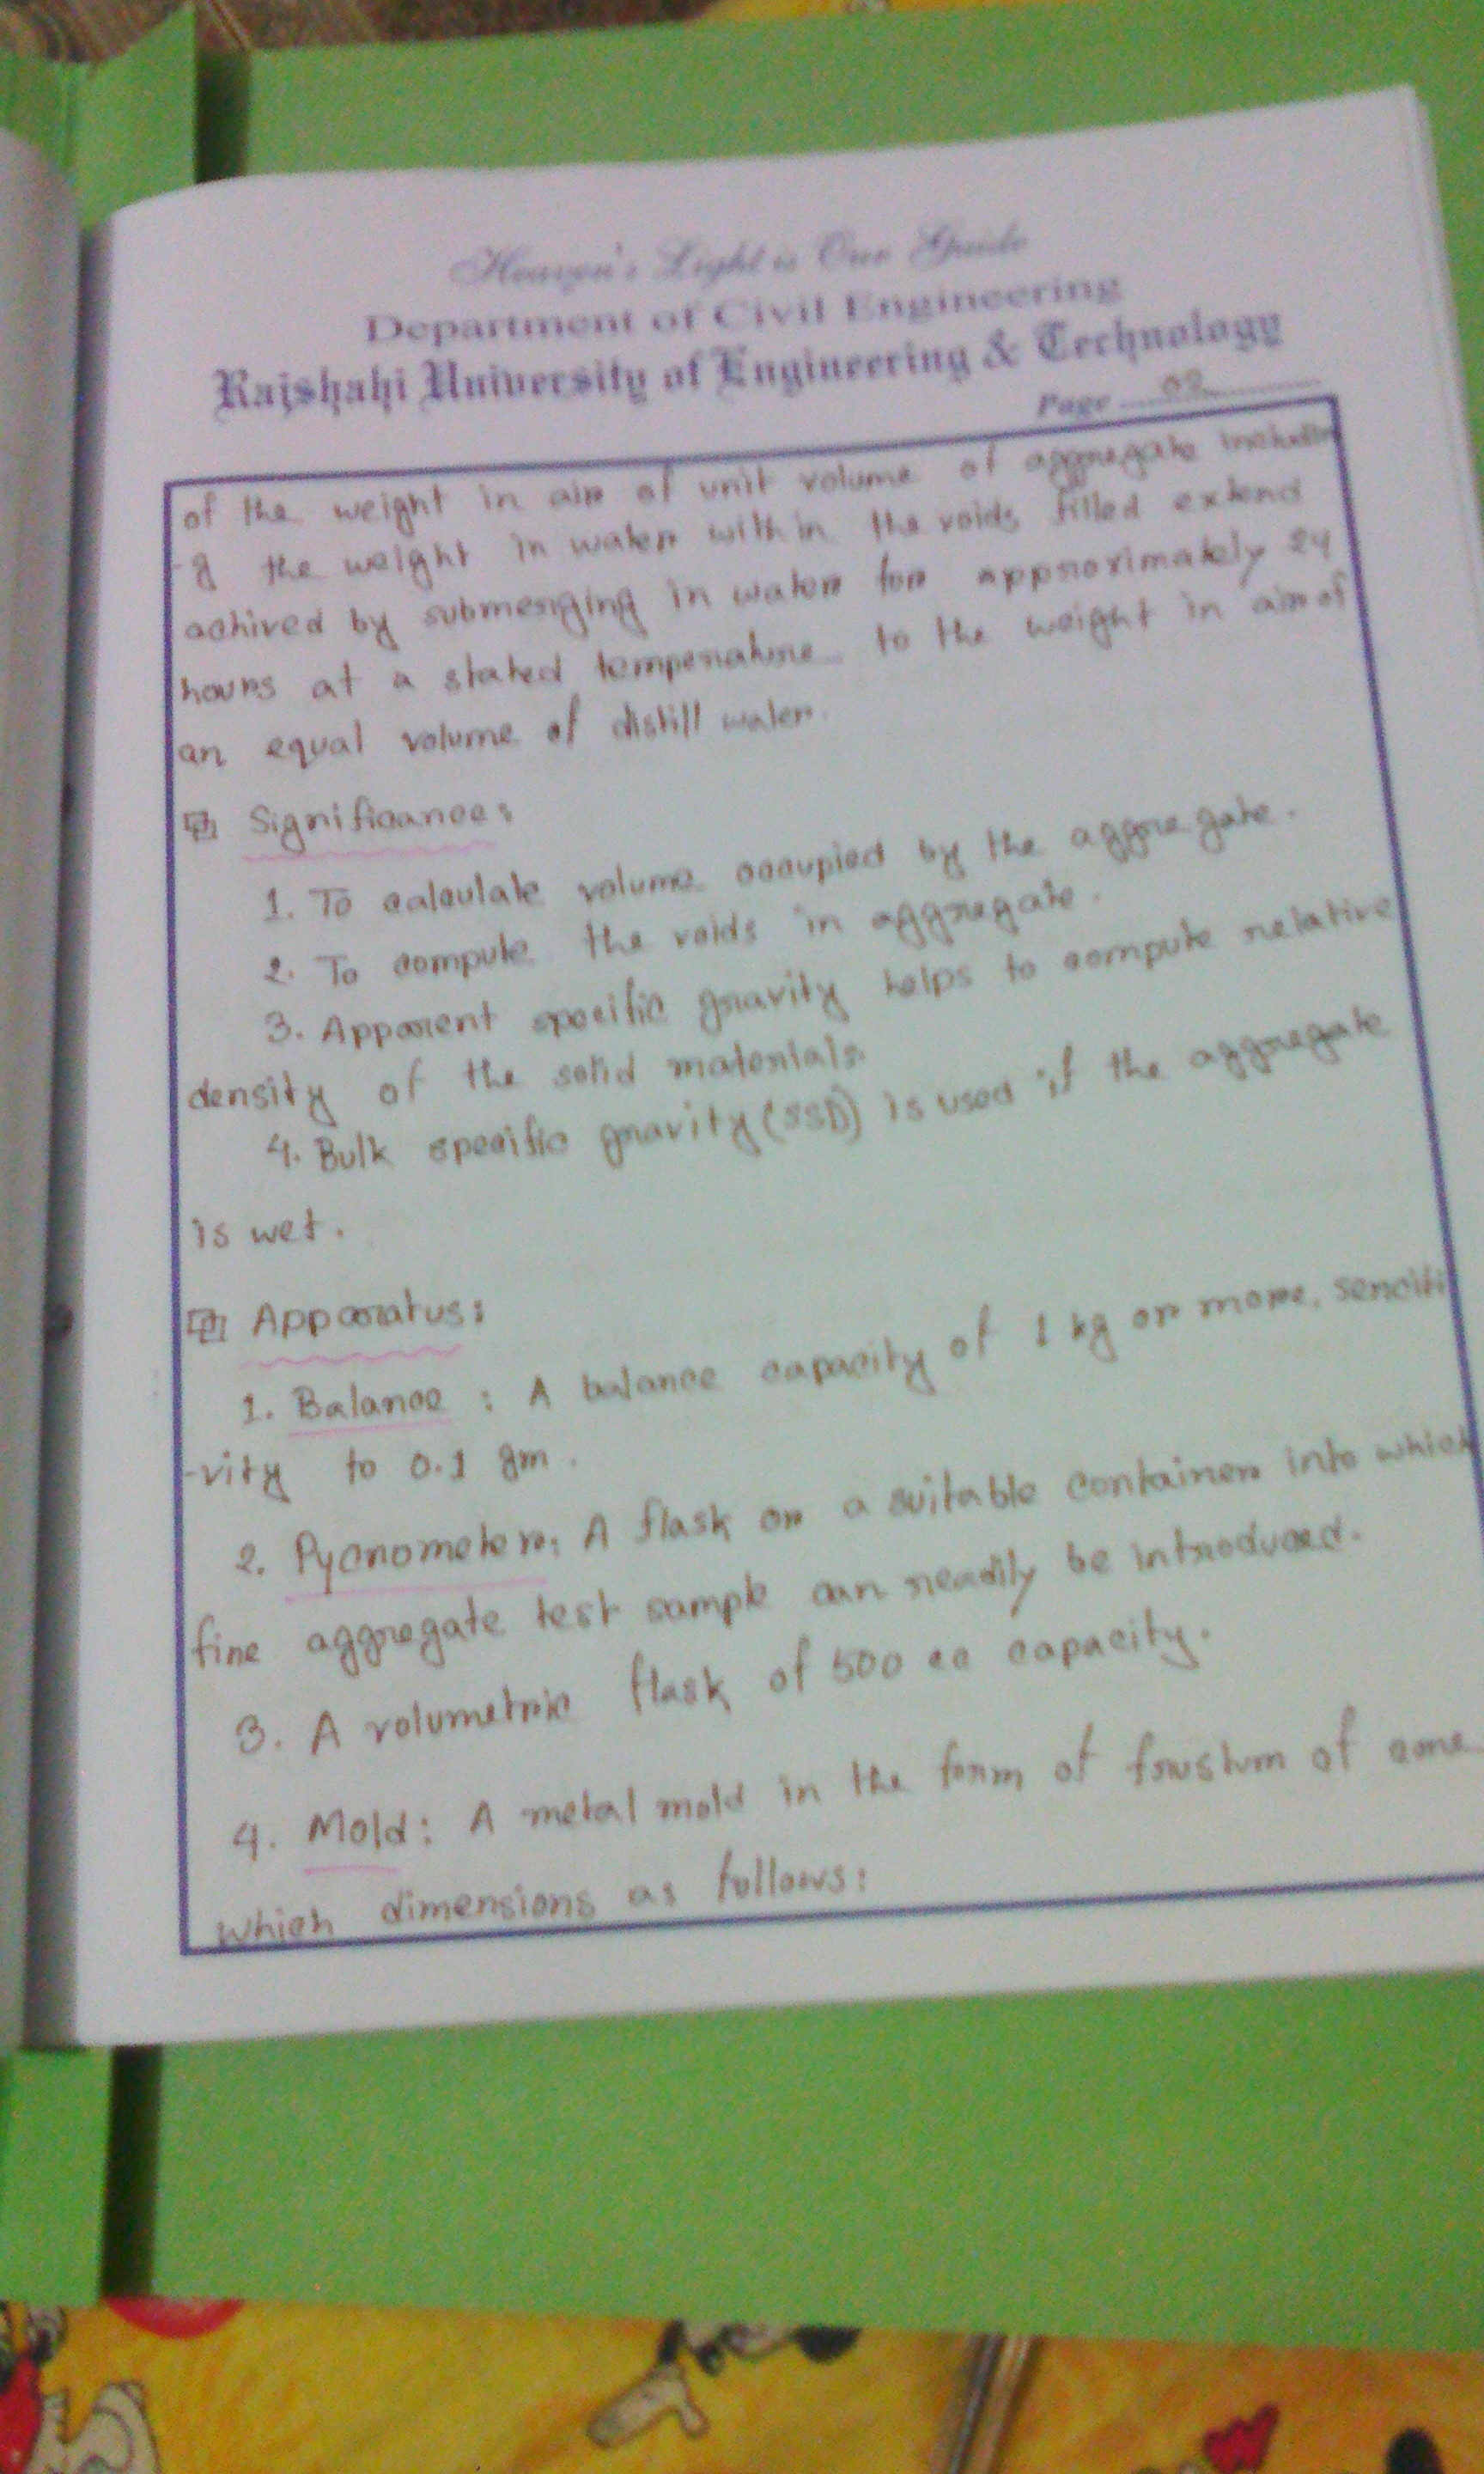 Heaven's Light is Our Guide
Department of Civil Engineering
Rajshahi University of Engineering & Technology
Page 02
of the weight in air of unit volume of aggregate includin
-g the weight in water within the voids filled extend
achived by submerging in water for approximately 24
hours at a stated temperature to the weight in air of
an equal volume of distill water.
Significance:
1. To calculate volume occupied by the aggregate.
2. To compute the voids in aggregate.
3. Apparent specific gravity helps to compute relative
density of the solid materials.
4. Bulk specific gravity (SSD) is used if the aggregate
is wet.
Apparatus:
1. Balance : A balance capacity of 1 kg or more, senciti
-vity to 0.1 gm.
2. Pycnometer: A flask or a suitable container into which
fine aggregate test sample can readily be introduced.
3. A volumetric flask of 500 cc capacity.
4. Mold: A metal mold in the form of frustum of cone
which dimensions as follows: